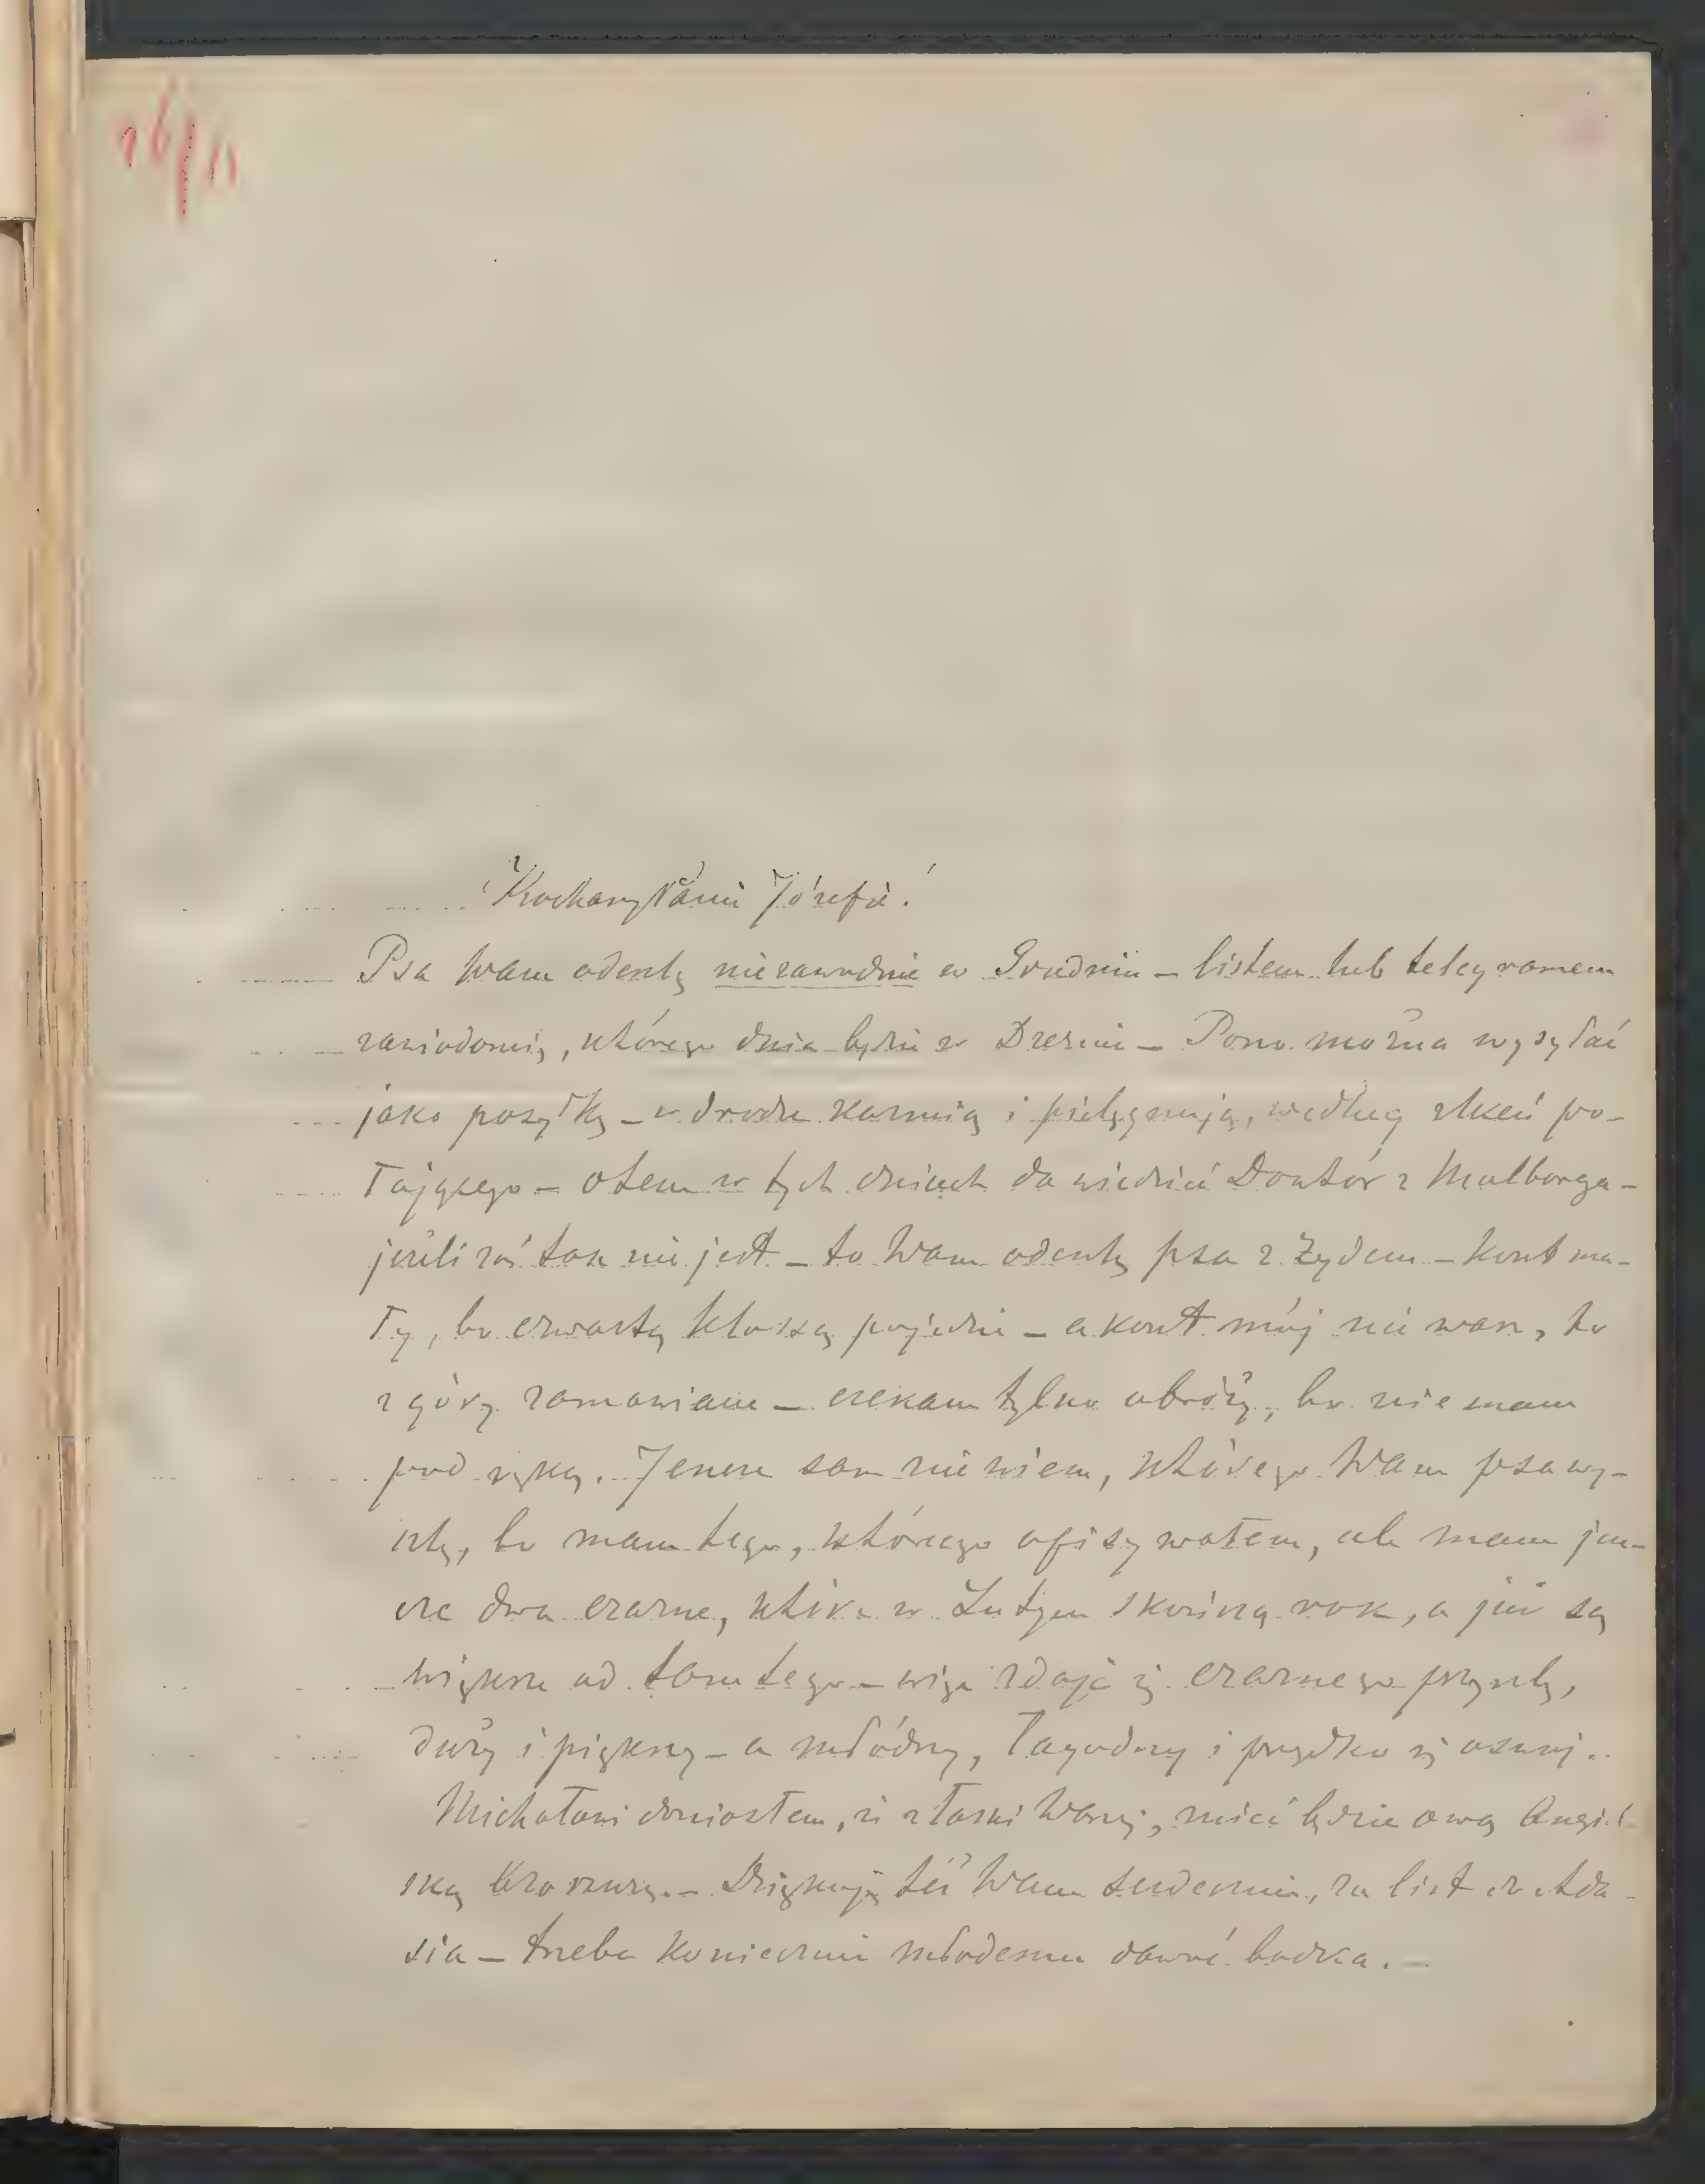 26/11
Kochany Panie Józefie!
Psa Wam odeszlę niezawodnie w Grudniu – listem lub telegramem
zawiadomię, którego dnia będzie w Dreznie – Pono można wysyłać
jako posyłkę – w drodze karmią i pielęgnują, według zleceń po-
łającego – o tem w tych dniach da wiedzieć Doktór z Malborga –
jeśli zaś tak nie jest – to Wam odeszlę psa z Żydem – koszt ma-
ły, bo czwartą klassą pojedzie – a koszt mój nie wasz, to
z góry zamawiam – czekam tylko obroży, bo nie mam
pod ręką. Jeszcze sam nie wiem, którego Wam psa wy-
szlę, bo mam tego, którego opisywałem, ale mam jesz-
cze dwa czarne, które w Lutym skończą rok, a już są
większe od tamtego – więc zdaje się czarnego przyszlę,
duży i piękny – a młodszy, łagodny i prędko się oswoi..
Michałowi doniosłem, iż z łaski Waszej, mieć będzie ową Angiel-
ską broszurę. – Dziękuję też Wam serdecznie, za list do Ada-
sia – trzeba koniecznie młodemu dawać bodźca. –